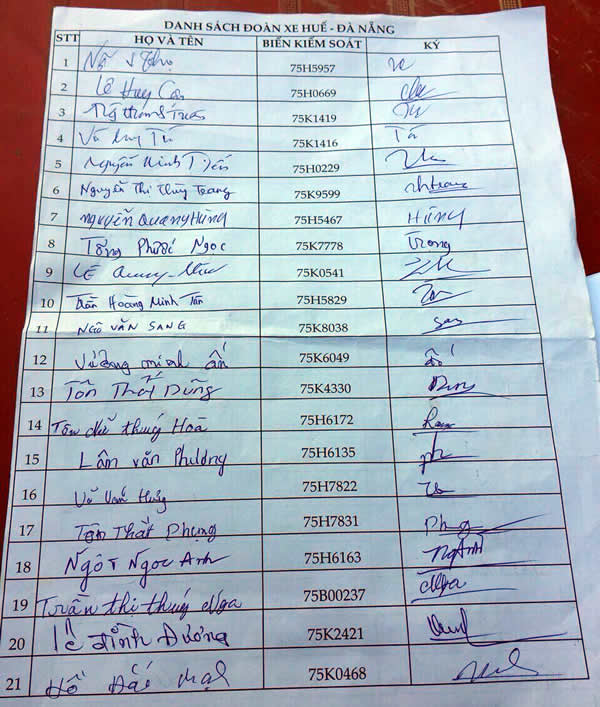 DANH SÁCH ĐOÀN XE HUẾ - ĐÀ NẴNG
STT HỌ VÀ TÊN BIỂN KIỂM SOÁT KÝ
1 75H5957
2 Lê Huy 75H0669
3 75K1419
4 Võ Duy Tú 75K1416 Tú
5 Nguyễn Minh Tiến 75H0229
6 Nguyễn Thị Thùy Trang 75K9599 nhtrang
7 Nguyễn Quang Hùng 75H5467 Hùng
8 Tống Phước Ngọc 75K7778 Trong
9 LÊ Quang 75K0541
10 Trần Hoàng Minh Tân 75H5829
11 NGÔ VĂN SANG 75K8038 San
12 Vương minh ấn 75K6049
13 Tôn Thất Dũng 75K4330 Dung
14 Tôn nữ thuý Hoà 75H6172
15 Lâm văn Phương 75H6135 ph
16 Võ Văn Hưng 75H7822
17 Tôn Thất Phụng 75H7831 Phụng
18 Ngô T Ngọc Anh 75H6163 NgAnh
19 Trần thị thuý Nga 75B00237 Nga
20 lê Đình Dương 75K2421
21 Hồ Đắc 75K0468